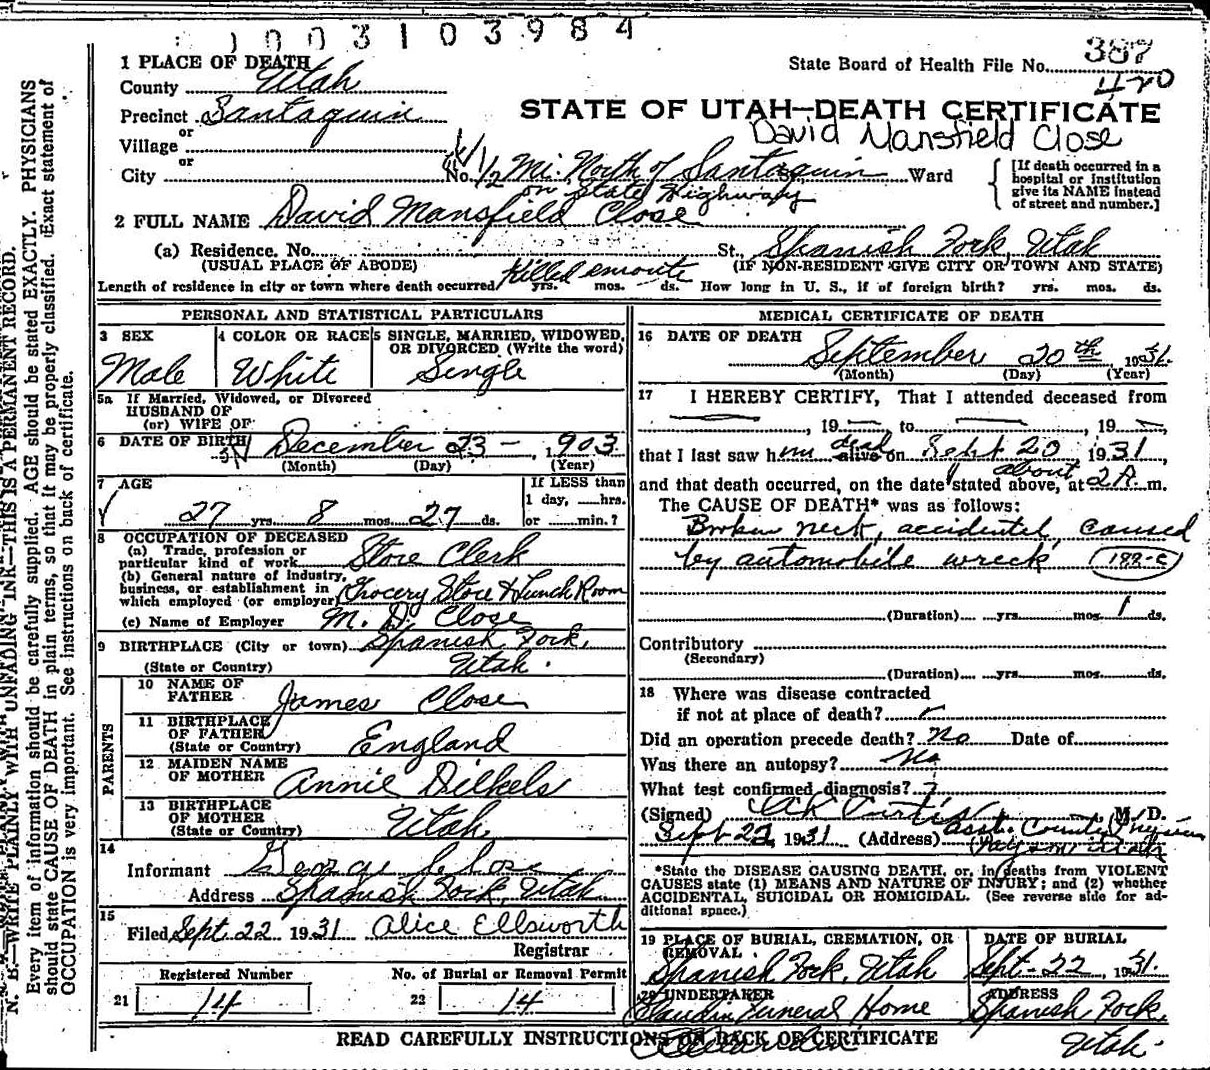 1003103984
1 PLACE OF DEATH
State Board of Health File No. 387
420
County Utah
Precinct Santaquin
STATE OF UTAH—DEATH CERTIFICATE
or
Village
David Mansfield Close
or
City No. 1/2 Mi. North of Santaquin Ward
on State Highway
[If death occurred in a
hospital or institution
give its NAME instead
of street and number.]
2 FULL NAME David Mansfield Close
(a) Residence. No. St., Spanish Fork, Utah
(USUAL PLACE OF ABODE) (IF NON-RESIDENT GIVE CITY OR TOWN AND STATE)
Length of residence in city or town where death occurred Killed enroute yrs. mos. ds. How long in U. S., if of foreign birth? yrs. mos. ds.
PERSONAL AND STATISTICAL PARTICULARS
3 SEX 4 COLOR OR RACE 5 SINGLE, MARRIED, WIDOWED,
OR DIVORCED (Write the word)
Male White Single
5a If Married, Widowed, or Divorced
HUSBAND OF
(or) WIFE OF
6 DATE OF BIRTH December 23 - 1903
(Month) (Day) (Year)
7 AGE If LESS than
1 day, hrs.
27 yrs. 8 mos. 27 ds. or min.?
8 OCCUPATION OF DECEASED
(a) Trade, profession or
particular kind of work Store Clerk
(b) General nature of industry,
business, or establishment in
which employed (or employer) Grocery Store & Lunch Room
(c) Name of Employer M. D. Close
9 BIRTHPLACE (City or town) Spanish Fork,
(State or Country) Utah.
PARENTS
10 NAME OF
FATHER James Close
11 BIRTHPLACE
OF FATHER
(State or Country) England
12 MAIDEN NAME
OF MOTHER Annie
13 BIRTHPLACE
OF MOTHER
(State or Country) Utah
14
Informant George Close
Address Spanish Fork, Utah
15
Filed Sept. 22 1931 Alice Ellsworth
Registrar
Registered Number No. of Burial or Removal Permit
21 14 22 14
MEDICAL CERTIFICATE OF DEATH
16 DATE OF DEATH
September 20th 1931.
(Month) (Day) (Year)
17 I HEREBY CERTIFY, That I attended deceased from
, 19 , to , 19 ,
that I last saw him dead alive on Sept 20, 1931,
about
and that death occurred, on the date stated above, at 2 A. m.
The CAUSE OF DEATH* was as follows:
Broken neck, accidental, caused
by automobile wreck 188-c
(Duration) yrs. mos. 1 ds.
Contributory
(Secondary)
(Duration) yrs. mos. ds.
18 Where was disease contracted
if not at place of death?
Did an operation precede death? No Date of
Was there an autopsy? No
What test confirmed diagnosis?
(Signed) Curtis, M. D.
Sept 22, 1931 (Address) Asst. County Physician
Payson Utah
*State the DISEASE CAUSING DEATH, or, in deaths from VIOLENT
CAUSES state (1) MEANS AND NATURE OF INJURY; and (2) whether
ACCIDENTAL, SUICIDAL OR HOMICIDAL. (See reverse side for ad-
ditional space.)
19 PLACE OF BURIAL, CREMATION, OR
REMOVAL DATE OF BURIAL
Spanish Fork, Utah Sept-22, 1931.
20 UNDERTAKER ADDRESS
Claudin Funeral Home Spanish Fork,
Utah.
READ CAREFULLY INSTRUCTIONS ON BACK OF CERTIFICATE
N. B.—WRITE PLAINLY WITH UNFADING INK—THIS IS A PERMANENT RECORD.
Every item of information should be carefully supplied. AGE should be stated EXACTLY. PHYSICIANS
should state CAUSE OF DEATH in plain terms, so that it may be properly classified. Exact statement of
OCCUPATION is very important. See instructions on back of certificate.